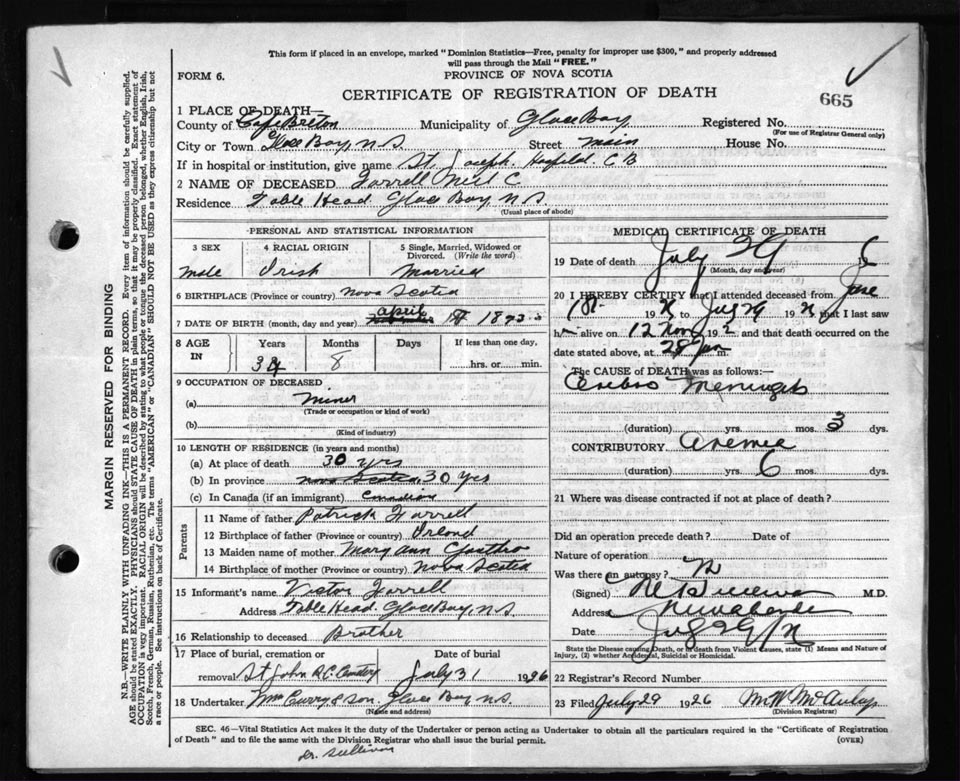 This form if placed in an envelope, marked "Dominion Statistics—Free, penalty for improper use $300," and properly addressed
will pass through the Mail "FREE."
FORM 6.
PROVINCE OF NOVA SCOTIA
CERTIFICATE OF REGISTRATION OF DEATH
665
1 PLACE OF DEATH—
County of Cape Breton Municipality of Glace Bay Registered No.
(For use of Registrar General only)
City or Town Glace Bay, N.S. Street Main House No.
If in hospital or institution, give name St. Joseph Hospital C B
2 NAME OF DECEASED Farrell C
Residence Table Head Glace Bay N S
(Usual place of abode)
PERSONAL AND STATISTICAL INFORMATION
3 SEX 4 RACIAL ORIGIN 5 Single, Married, Widowed or Divorced. (Write the word)
Male Irish Married
6 BIRTHPLACE (Province or country) Nova Scotia
7 DATE OF BIRTH (month, day and year) April 18
8 AGE IN Years Months Days If less than one day,
8 hrs. or min.
9 OCCUPATION OF DECEASED
(a) Miner
(Trade or occupation or kind of work)
(b)
(Kind of industry)
10 LENGTH OF RESIDENCE (in years and months)
(a) At place of death 30 yrs
(b) In province Nova Scotia 30 Yrs
(c) In Canada (if an immigrant) Canadian
Parents
11 Name of father Patrick Farrell
12 Birthplace of father (Province or country) Irland
13 Maiden name of mother Mary Ann
14 Birthplace of mother (Province or country) Nova Scotia
15 Informant's name Victor Farrell
Address Table Head Glace Bay, N.S.
16 Relationship to deceased Brother
17 Place of burial, cremation or removal Date of burial
St John R.C. Cemetery July 31 1926
18 Undertaker McCurry & Son, Glace Bay N.S.
(Name and address)
MEDICAL CERTIFICATE OF DEATH
19 Date of death July 29 6
(Month, day and year)
20 I HEREBY CERTIFY that I attended deceased from June
192 to July 29 192 that I last saw
h alive on 12 192 and that death occurred on the
date stated above, at m.
The CAUSE of DEATH was as follows:—
Cerebro Meningitis
(duration) yrs. mos. 3 dys.
CONTRIBUTORY
(duration) yrs. 6 mos. dys.
21 Where was disease contracted if not at place of death?
Did an operation precede death? Date of
Nature of operation
Was there an autopsy?
(Signed) M.D.
Address
Date July 29
State the Disease causing Death, or in death from Violent Causes, state (1) Means and Nature of
Injury, (2) whether Accidental, Suicidal or Homicidal.
22 Registrar's Record Number
23 Filed July 29 1926 M W McAulay
(Division Registrar)
SEC. 46—Vital Statistics Act makes it the duty of the Undertaker or person acting as Undertaker to obtain all the particulars required in the "Certificate of Registration
of Death" and to file the same with the Division Registrar who shall issue the burial permit. (OVER)
Dr. Sullivan
MARGIN RESERVED FOR BINDING
N.B.—WRITE PLAINLY WITH UNFADING INK—THIS IS A PERMANENT RECORD. Every item of information should be carefully supplied.
AGE should be stated EXACTLY. PHYSICIANS should STATE CAUSE OF DEATH in plain terms, so that it may be properly classified. Exact statement of
OCCUPATION is very important. RACIAL ORIGIN will be described by stating to what people or tongue the deceased person belonged, whether English, Irish,
Scotch, French, German, Russian, Ruthenian, etc. The terms "AMERICAN" or "CANADIAN" SHOULD NOT BE USED as they express citizenship but not
a race or people. See instructions on back of Certificate.